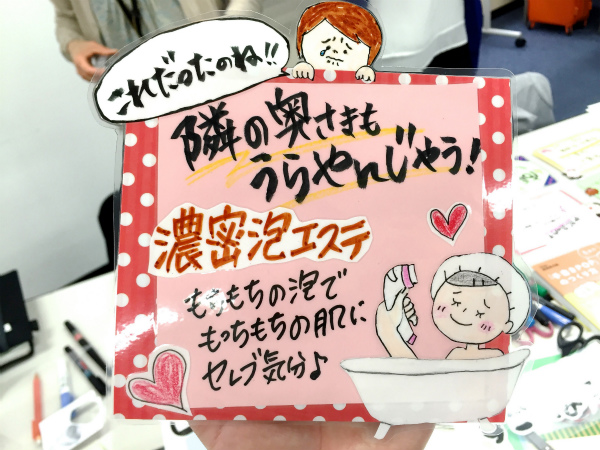 これだったのね!!
隣の奥さまも
うらやんじゃう!
濃密泡エステ
もちもちの泡で
もっちもちの肌に
セレブ気分♪